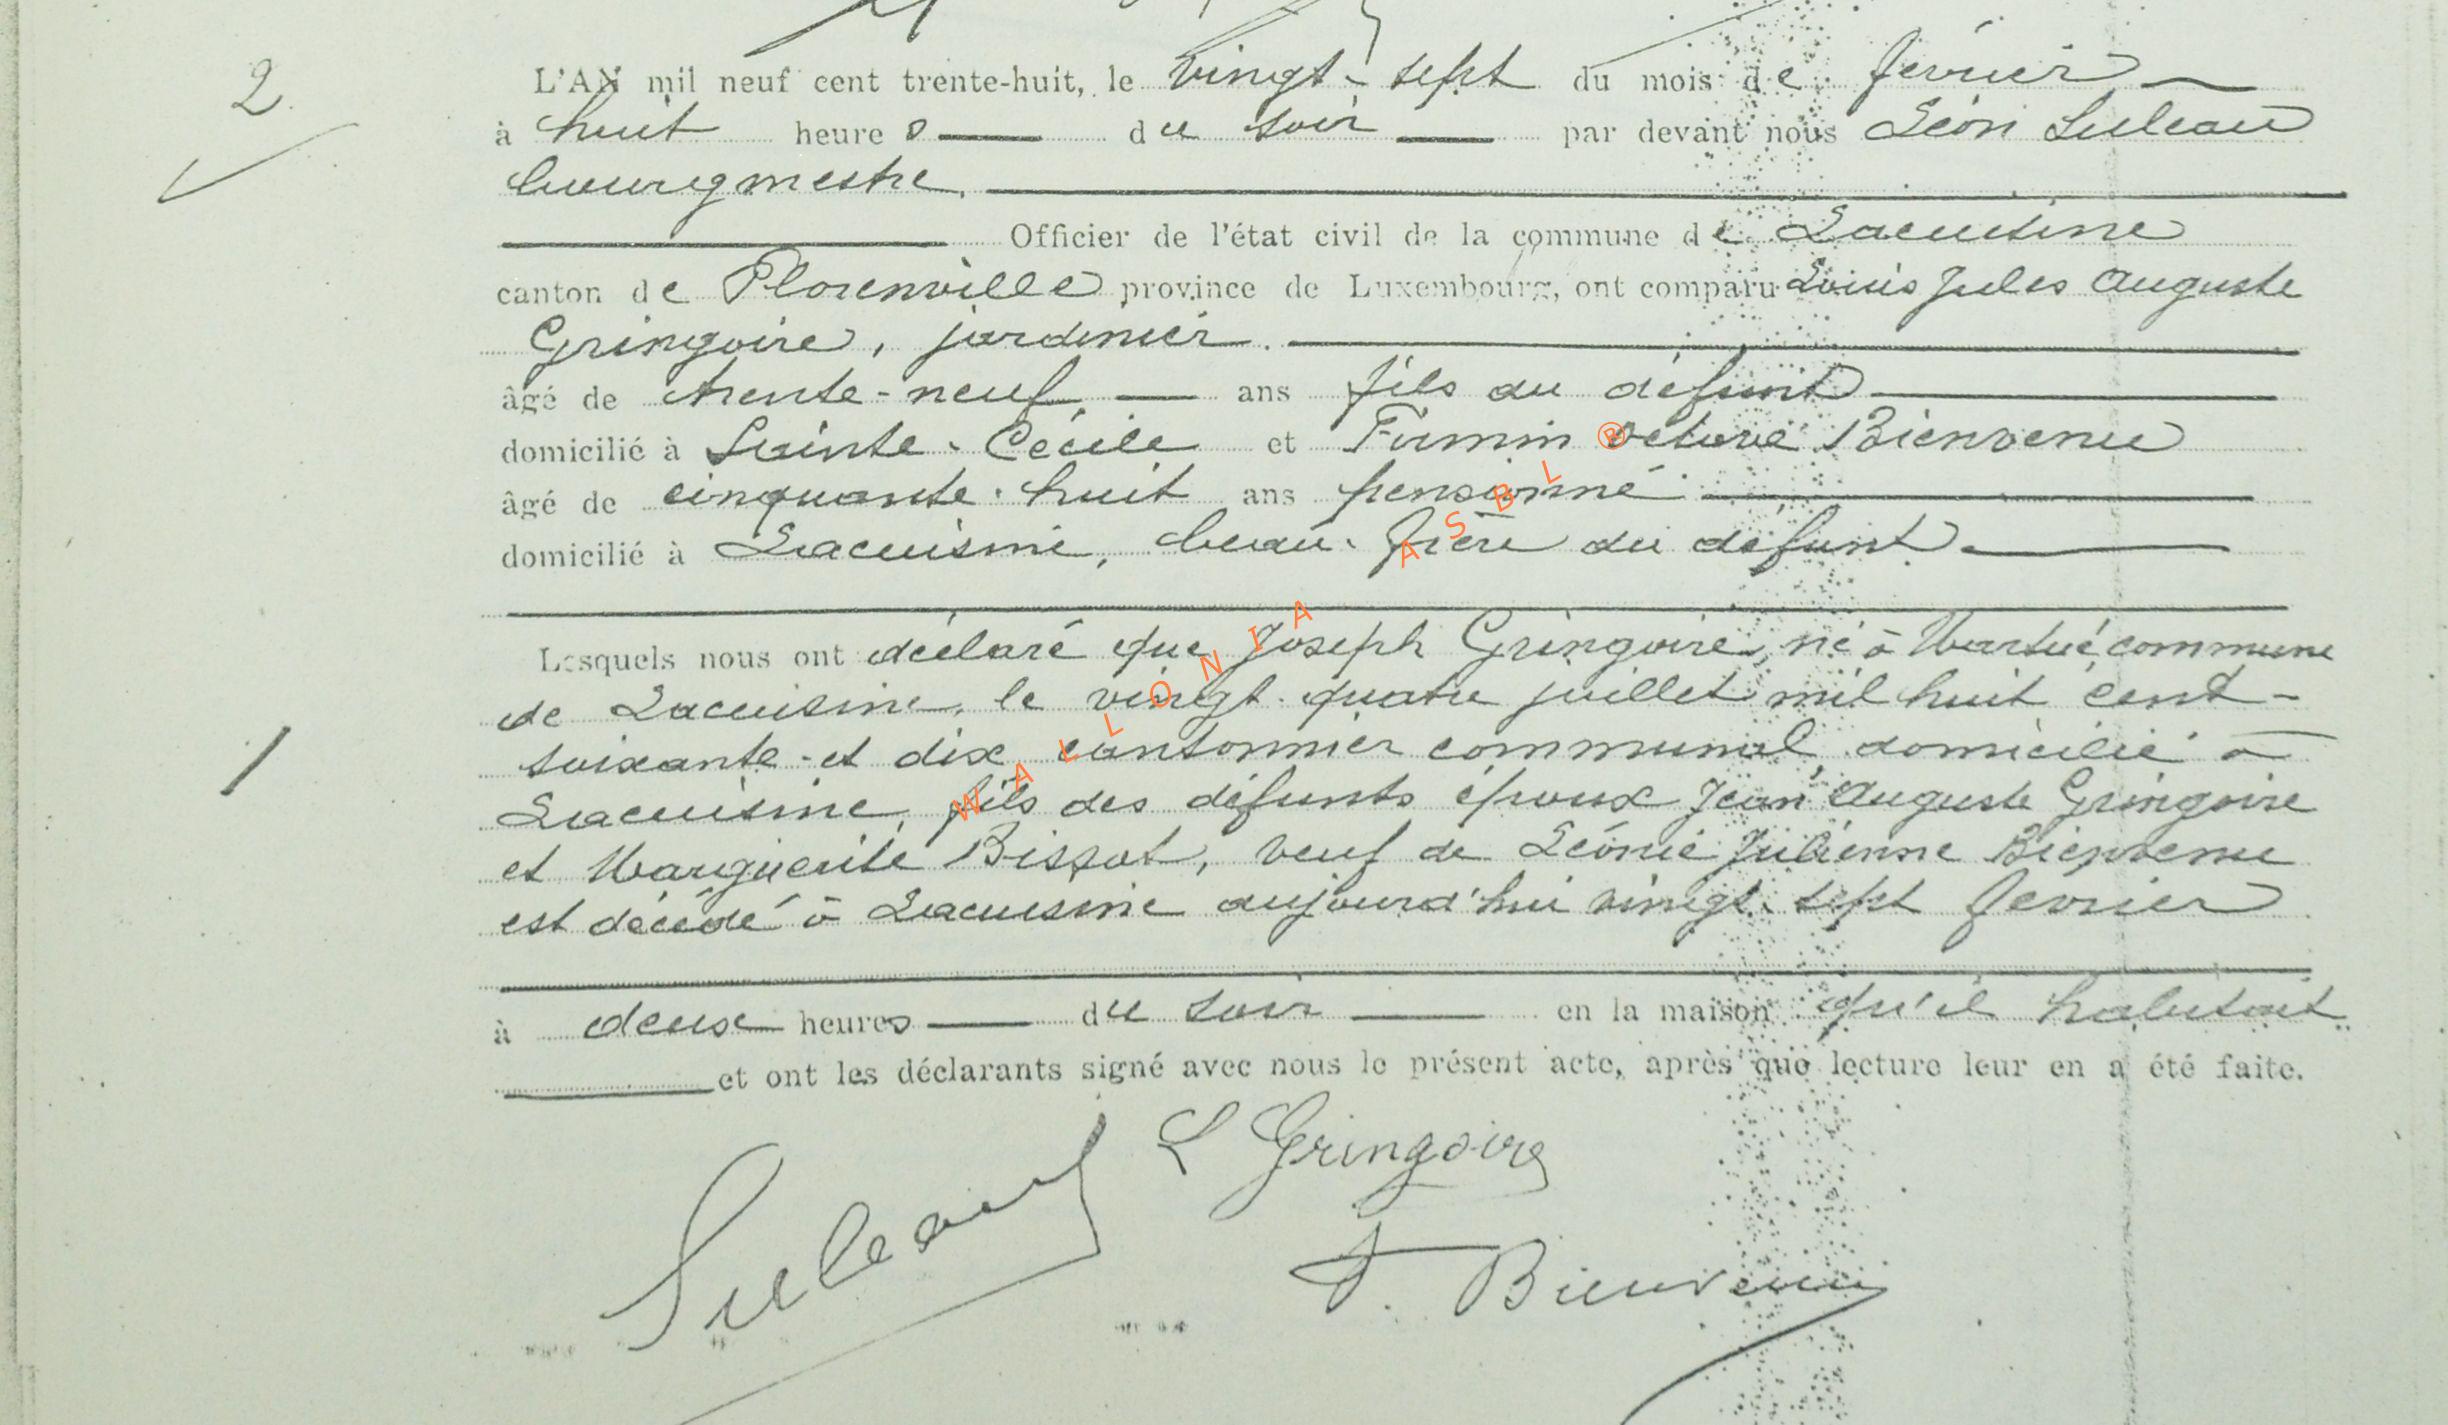 2
L'AN mil neuf cent trente-huit, le vingt-sept du mois de février
à huit heures du soir par devant nous Léon Suleau
bourgmestre.
Officier de l'état civil de la commune de Lacuisine
canton de Florenville province de Luxembourg, ont comparu Louis Jules Auguste
Gringoire, jardinier.
âgé de trente-neuf ans fils du défunt
domicilié à Sainte-Cécile et Firmin Octave Bienvenu
âgé de cinquante-huit ans pensionné
domicilié à Lacuisine, beau-frère du défunt.
Lesquels nous ont déclaré que Joseph Gringoire, né à Martué commune
de Lacuisine, le vingt-quatre juillet mil huit cent-
soixante-et dix cantonnier communal, domicilié à
1
Lacuisine, fils des défunts époux Jean Auguste Gringoire
et Marguerite Bissot, veuf de Léonie Julienne Bienvenu
est décédé à Lacuisine aujourd'hui vingt-sept février
à deux heures du soir en la maison qu'il habitait
et ont les déclarants signé avec nous le présent acte, après que lecture leur en a été faite.
Suleau L Gringoire
F. Bienvenu
WALLONIA ASBL ®